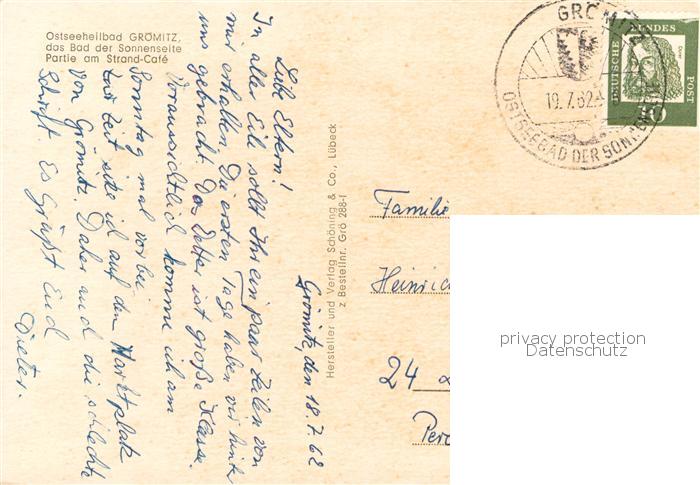 Ostseeheilbad GRÖMITZ,
das Bad der Sonnenseite
Partie am Strand-Café
Grömitz, den 18.7.62
Liebe Eltern!
In aller Eile sollt Ihr ein paar Zeilen von
mir erhalten. Die ersten Tage haben wir hinter
uns gebracht. Das Wetter ist große Klasse.
Voraussichtlich komme ich am
Sonntag mal vorbei.
Zur Zeit sitze ich auf dem Marktplatz
von Grömitz. Daher auch die schlechte
Schrift. Es grüßt Euch
Dieter.
Hersteller und Verlag Schöning & Co., Lübeck
z Bestellnr. Grö 288-I
GRÖMITZ
19.7.62
OSTSEEBAD DER SONNEN
DEUTSCHE BUNDESPOST
10
Familie
Heinric
24
privacy protection
Datenschutz